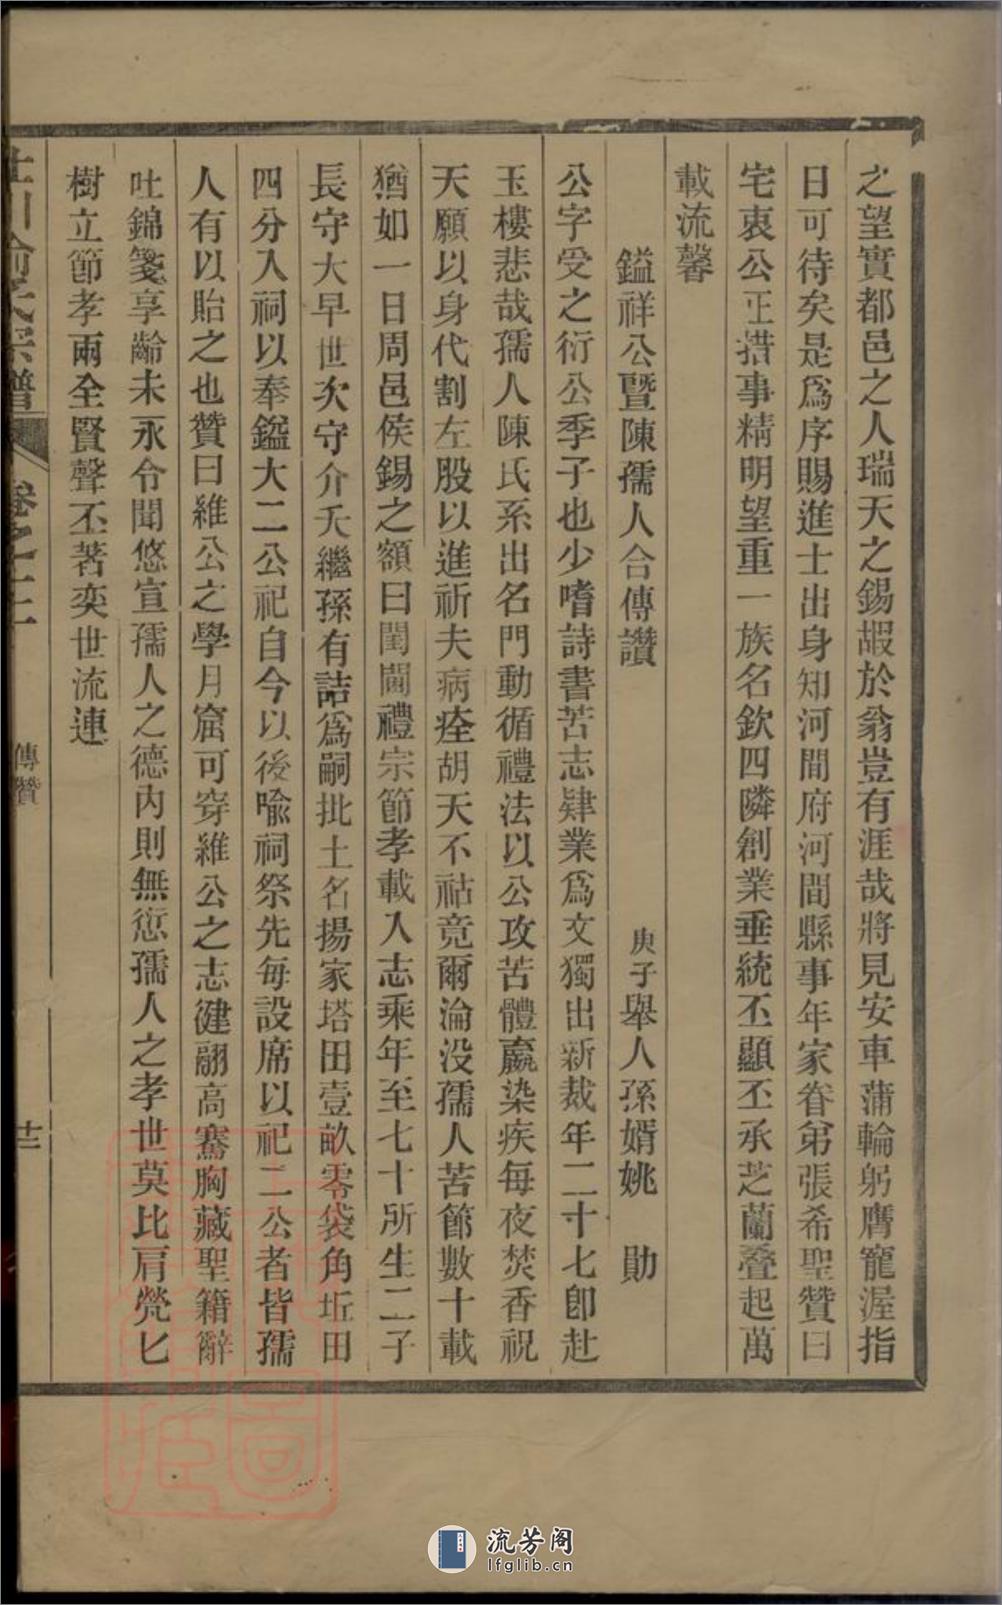 之望實都邑之人瑞天之錫嘏於翁豈有涯哉將見安車蒲輪躬膺寵渥指
日可待矣是爲序賜進士出身知河間府河間縣事年家眷弟張希聖贊曰
宅衷公正措事精明望重一族名欽四隣創業垂統丕顯丕承芝蘭叠起萬
載流馨
鎰祥公暨陳孺人合傳讚
庚子舉人孫婿姚 勛
公字受之衍公季子也少嗜詩書苦志肄業爲文獨出新裁年二十七卽赴
玉樓悲哉孺人陳氏系出名門動循禮法以公攻苦體羸染疾每夜焚香祝
天願以身代割左股以進祈夫病痊胡天不祜竟爾淪没孺人苦節數十載
猶如一日周邑侯錫之額曰閨閫禮宗節孝載入志乘年至七十所生二子
長守大早世次守介夭繼孫有詰爲嗣批土名揚家塔田壹畝零袋角坵田
四分入祠以奉鎰大二公祀自今以後喩祠祭先每設席以祀二公者皆孺
人有以貽之也贊曰維公之學月窟可穿維公之志健翮高騫胸藏聖籍辭
吐錦箋享齡未永令聞悠宣孺人之德內則無愆孺人之孝世莫比肩煢匕
樹立節孝兩全賢聲丕著奕世流連
俞氏宗譜
卷之二
傳贊
十三
流芳阁
lfglib.cn